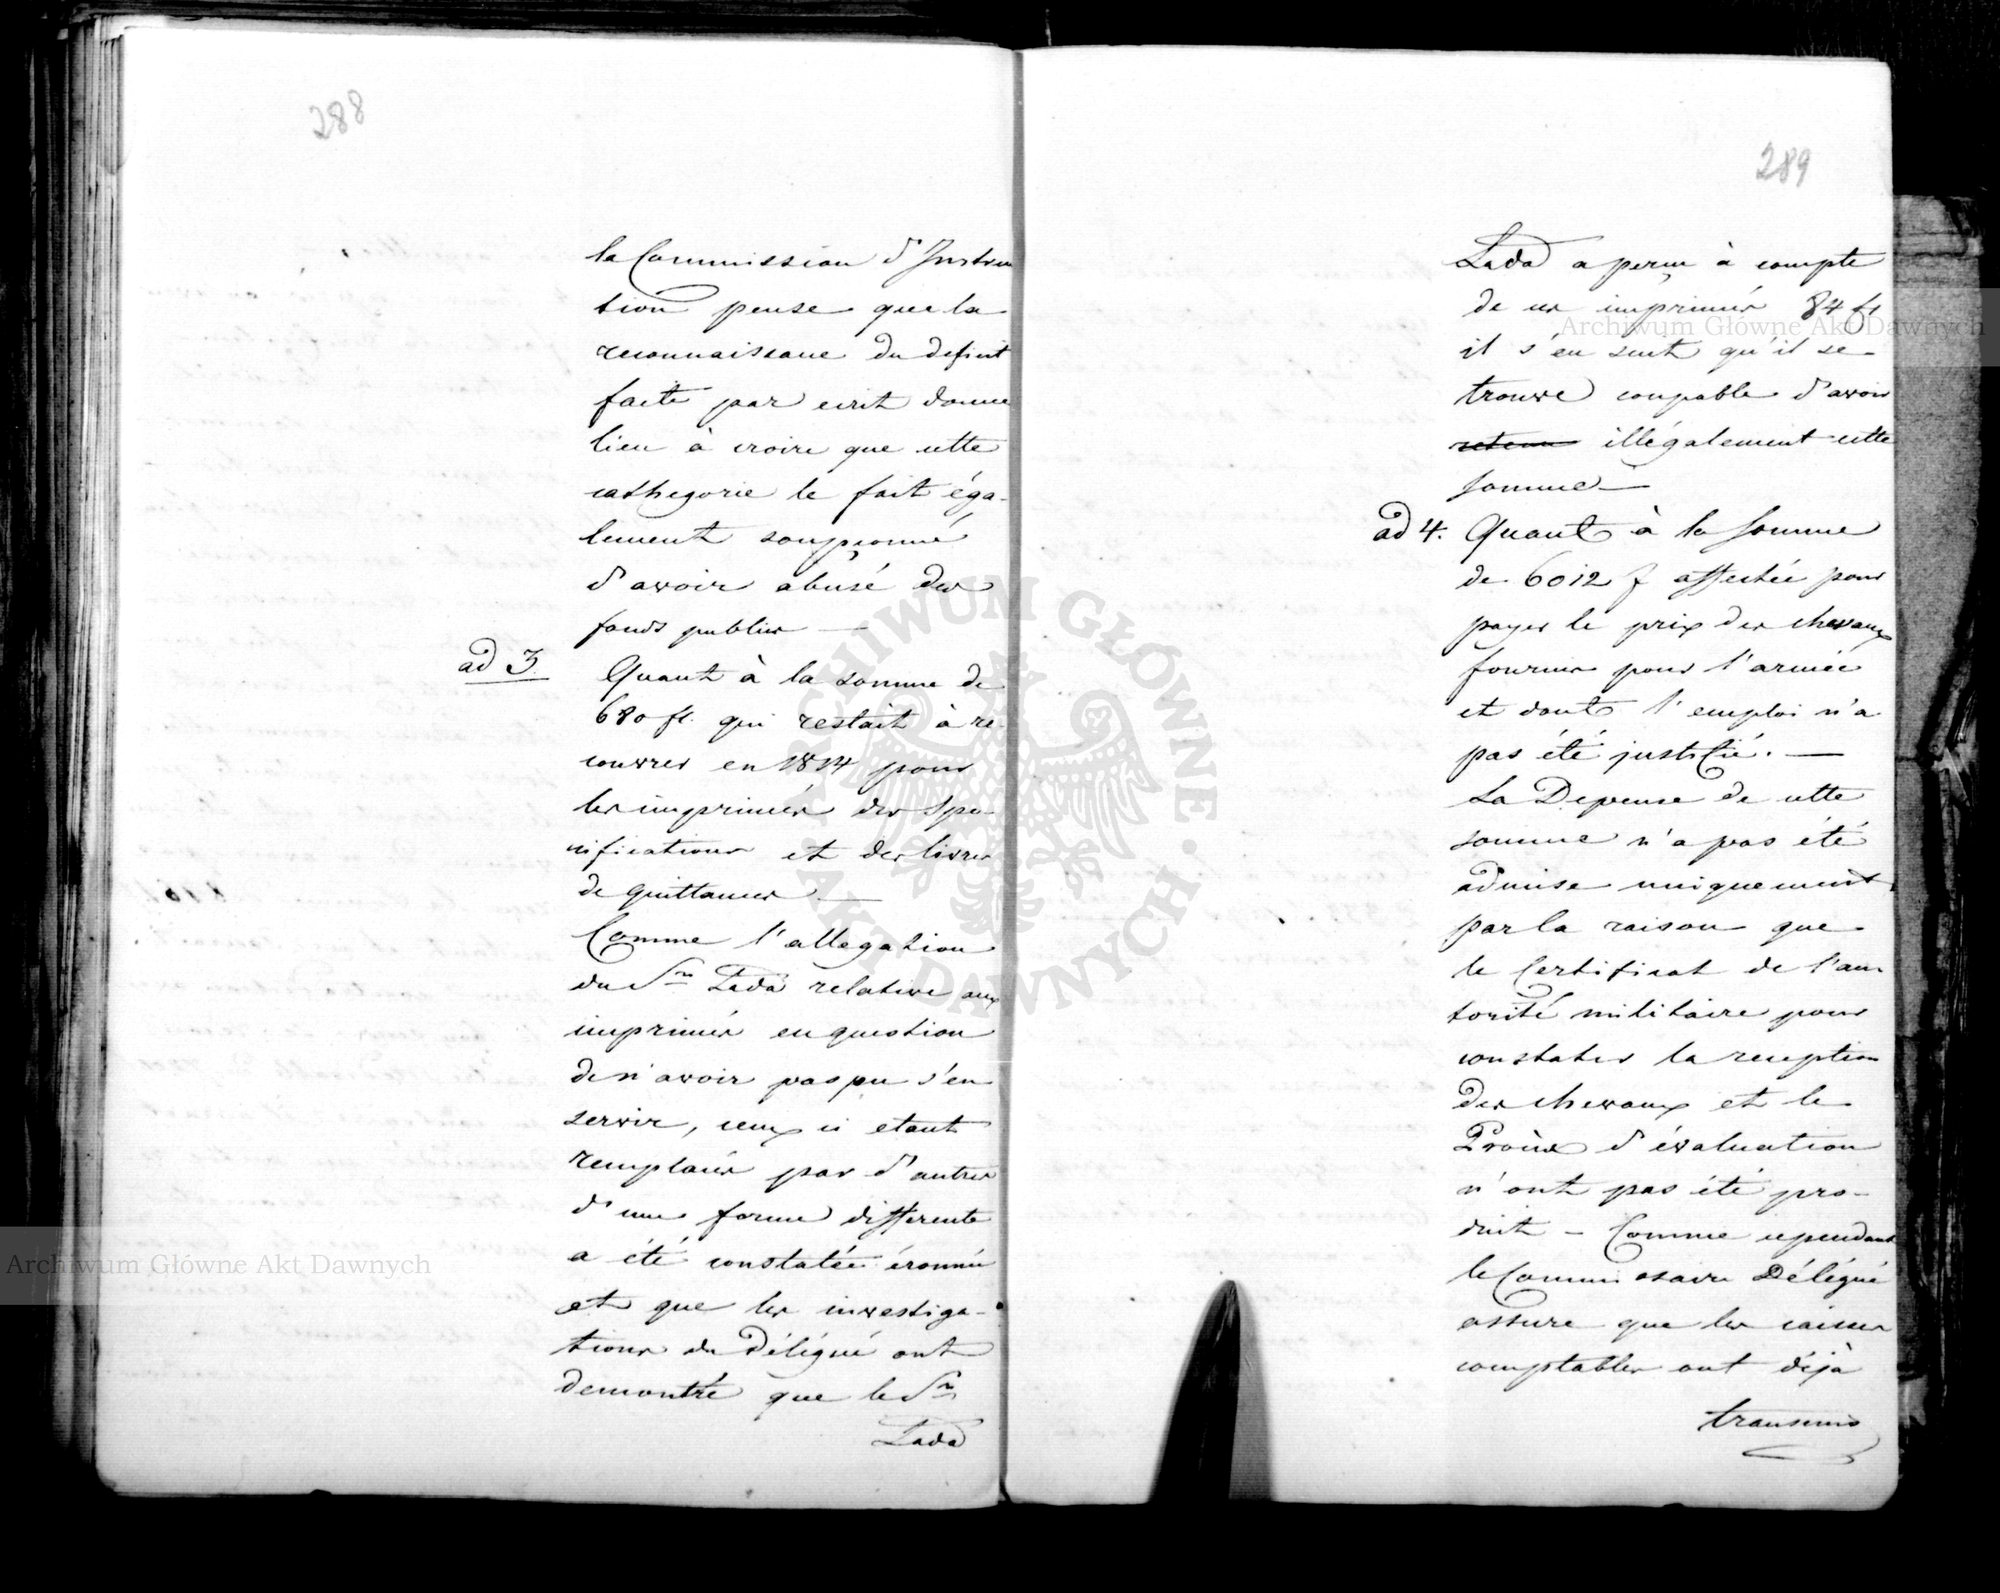 288
la Commission d'Instruc
tion pense que la
reconnaissance du deficit
faite par ecrit donne
lieu à croire que cette
cathegorie le fait éga-
lement soupçonné
d'avoir abusé des
fonds publics —
ad 3. Quant à la somme de
680 fl. qui restait à re-
couvrer en 1814 pour
les imprimés des Spe-
cifications et des livres
de quittances —
Comme l'allegation
du Sr Lada relative aux
imprimés en question
de n'avoir pas pu s'en
servir, ceux ci etant
remplacés par d'autres
d'une forme differente
a été constatée éronnée
et que les investiga-
tions du Délégué ont
demontré que le Sr
Lada
289
Lada a perçu à compte
de ces imprimés 84 fl
il s'en suit qu'il se
trouve coupable d'avoir
retenu illégalement cette
somme —
ad 4. Quant à la somme
de 6012 f affectée pour
payer le prix des chevaux
fournis pour l'armée
et dont l'emploi n'a
pas été justifié. —
La Depense de cette
somme n'a pas été
admise uniquement
par la raison que
le Certificat de l'au
torité militaire pour
constater la reception
des chevaux et le
Procès d'évaluation
n'ont pas été pro-
duit – Comme cependant
le Commissaire Délégué
assure que les caisses
comptables ont déjà
transmis
Archiwum Główne Akt Dawnych
Archiwum Główne Akt Dawnych
ARCHIWUM GŁÓWNE · AKT DAWNYCH ·